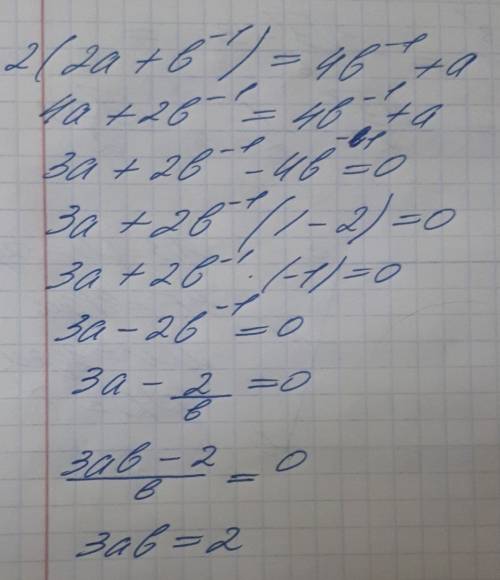 2(2a + b⁻¹) = 4b⁻¹ + a
4a + 2b⁻¹ = 4b⁻¹ + a
3a + 2b⁻¹ - 4b⁻¹ = 0
3a + 2b⁻¹ (1 - 2) = 0
3a + 2b⁻¹ · (-1) = 0
3a - 2b⁻¹ = 0
3a - 2/b = 0
(3ab - 2)/b = 0
3ab = 2